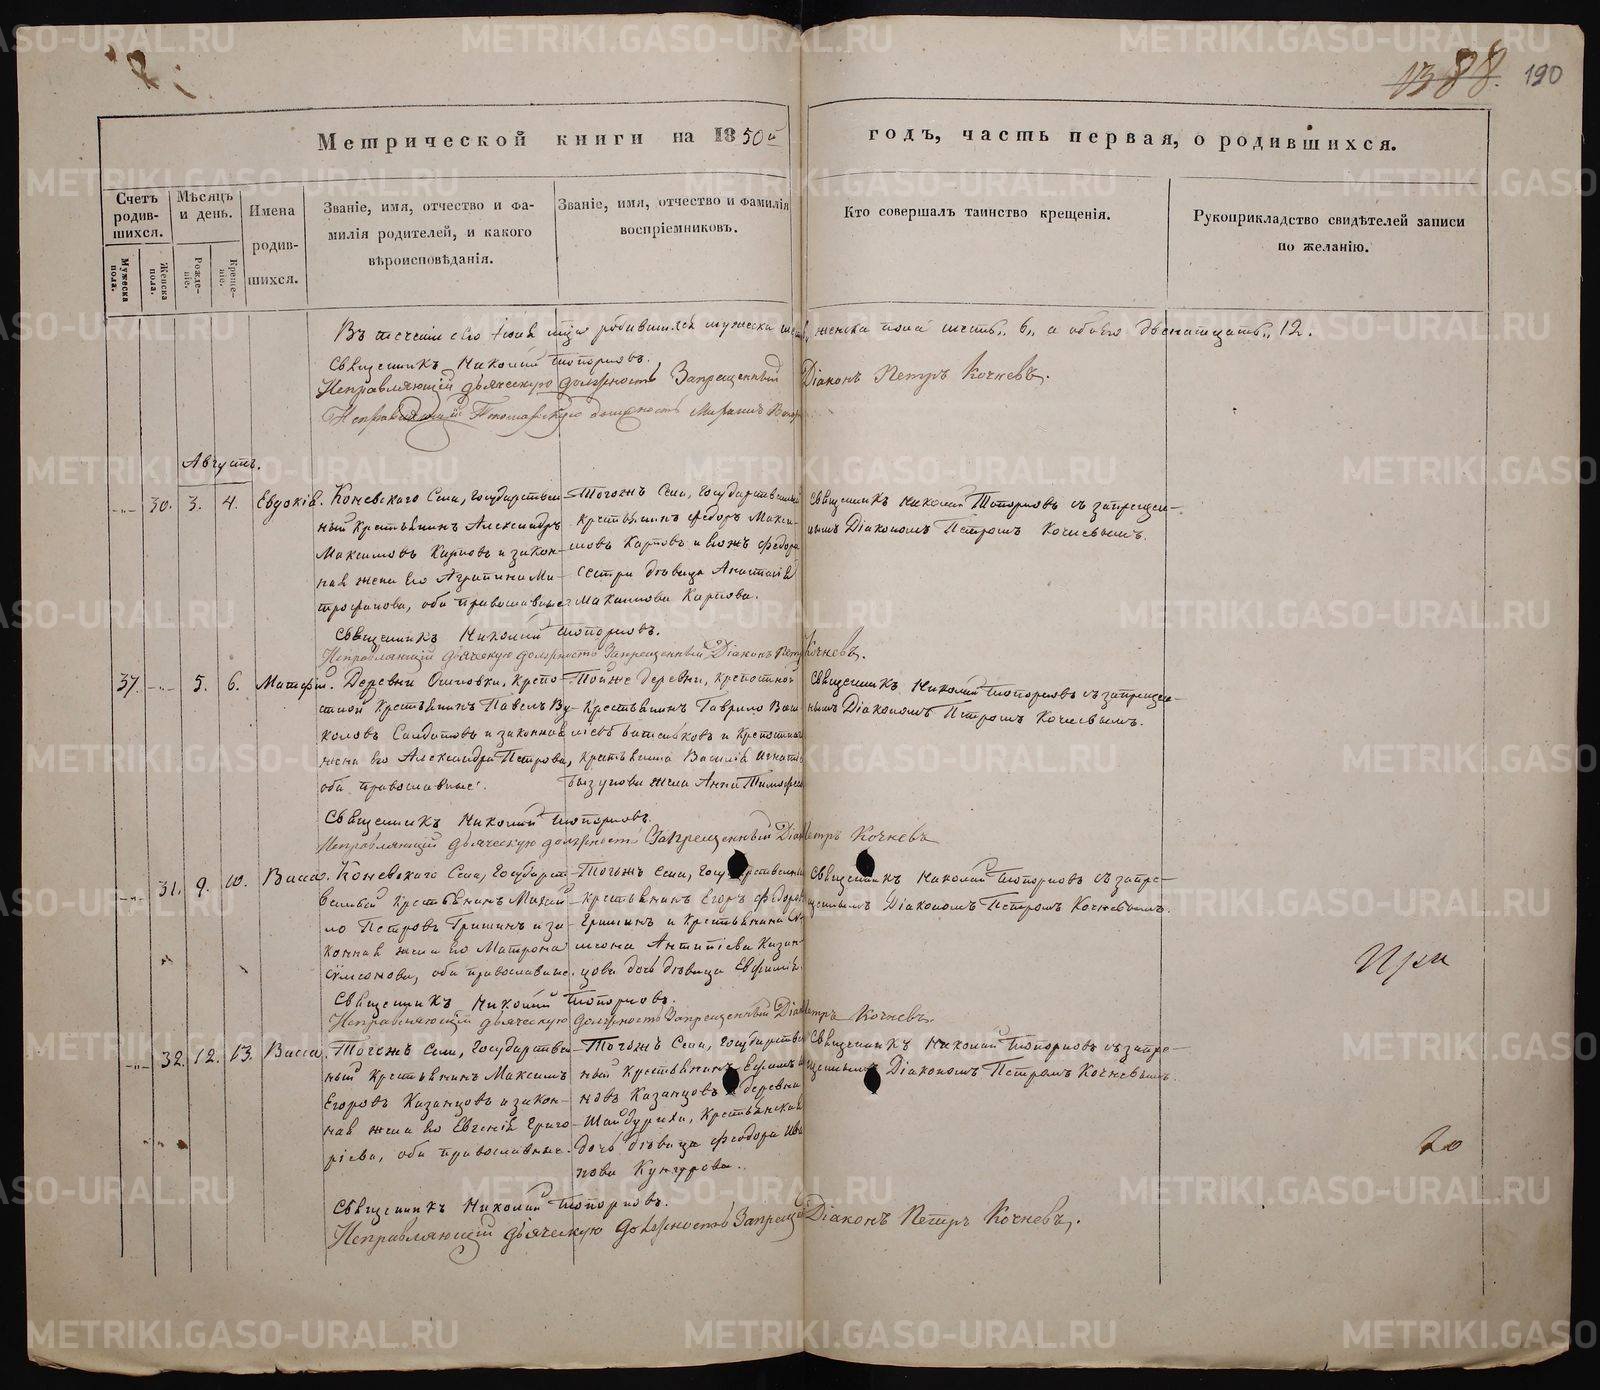 1388. 190
Метрической книги на 1850й годъ, часть первая, о родившихся.
Счетъ родив-шихся.
Мужеска пола.
Женска пола.
Мѣсяцъ и день.
Рожде-ніе.
Креще-ніе.
Имена
родив-
шихся.
Званіе, имя, отчество и фа-
милія родителей, и какого
вѣроисповѣданія.
Званіе, имя, отчество и фамилія
воспріемниковъ.
Кто совершалъ таинство крещенія.
Рукоприкладство свидѣтелей записи
по желанію.
Въ теченіи сего родившихся мужеска женска пола шесть „6„ а обоего двенатцать „12.
Священникъ Николай Топорковъ.
Исправляющій дьяческую должность Запрещенный Діаконъ Петръ Кочневъ.
Исправляющій Пономарскую должность
Августъ.
30. 3. 4. Евдокія.
Коневскаго Села, Государствен-
ный крестьянинъ Александръ
Максимовъ Карповъ и закон-
ная жена его Агрипина Ми-
трофанова, оба православные
Тогожъ Села, Государственный
крестьянинъ Федоръ Макси-
мовъ Карповъ и
сестра дѣвица Анастасія
Максимова Карпова.
Священникъ Николай Топорковъ съ запрещен-
нымъ Діакономъ Петромъ Кочневымъ.
Священникъ Николай Топорковъ.
Исправляющій дьяческую должность Запрещенный Діаконъ Петръ Кочневъ.
37. 5. 6. Матфій.
Деревни крепо-
стной крестьянинъ Павелъ Ву-
коловъ Солдатовъ и законная
жена его Александра Петрова,
оба православные.
Тойже деревни, крепостной
крестьянинъ Гаврило
и крепостнаго
крестьянина Василія
жена Анна Тимофеева
Священникъ Николай Топорковъ съ запрещен-
нымъ Діакономъ Петромъ Кочневымъ.
Священникъ Николай Топорковъ.
Исправляющій дьяческую должность Запрещенный Діаконъ Петръ Кочневъ
31. 9. 10. Васса.
Коневскаго Села, Государст-
венный крестьянинъ Михай-
ло Петровъ Гришинъ и за-
конная жена его Матрона
Симеонова, оба православные.
Тогожъ Села, Государственный
крестьянинъ Егоръ Федоровъ
Гришинъ и крестьянина Си-
меона Антипіева Казан-
цова дочь дѣвица Евфимія.
Священникъ Николай Топорковъ съ запре-
щеннымъ Діакономъ Петромъ Кочневымъ.
При
Священникъ Николай Топорковъ.
Исправляющій дьяческую должность Запрещенный Діаконъ Петръ Кочневъ.
32. 12. 13. Васса.
Тогожъ Села, Государствен-
ный крестьянинъ Максимъ
Егоровъ Казанцовъ и закон-
ная жена его Евгенія Григо-
рьева, оба православные.
Тогожъ Села, Государствен-
ный крестьянинъ Ефимъ
Казанцовъ и деревни
Шайдурихи, Крестьянская
дочь дѣвица Феодора Ива-
нова Кунгурова.
Священникъ Николай Топорковъ съ запре-
щеннымъ Діакономъ Петромъ Кочневымъ.
Священникъ Николай Топорковъ.
Исправляющій дьяческую должность Запрещенный Діаконъ Петръ Кочневъ.
METRIKI.GASO-URAL.RU